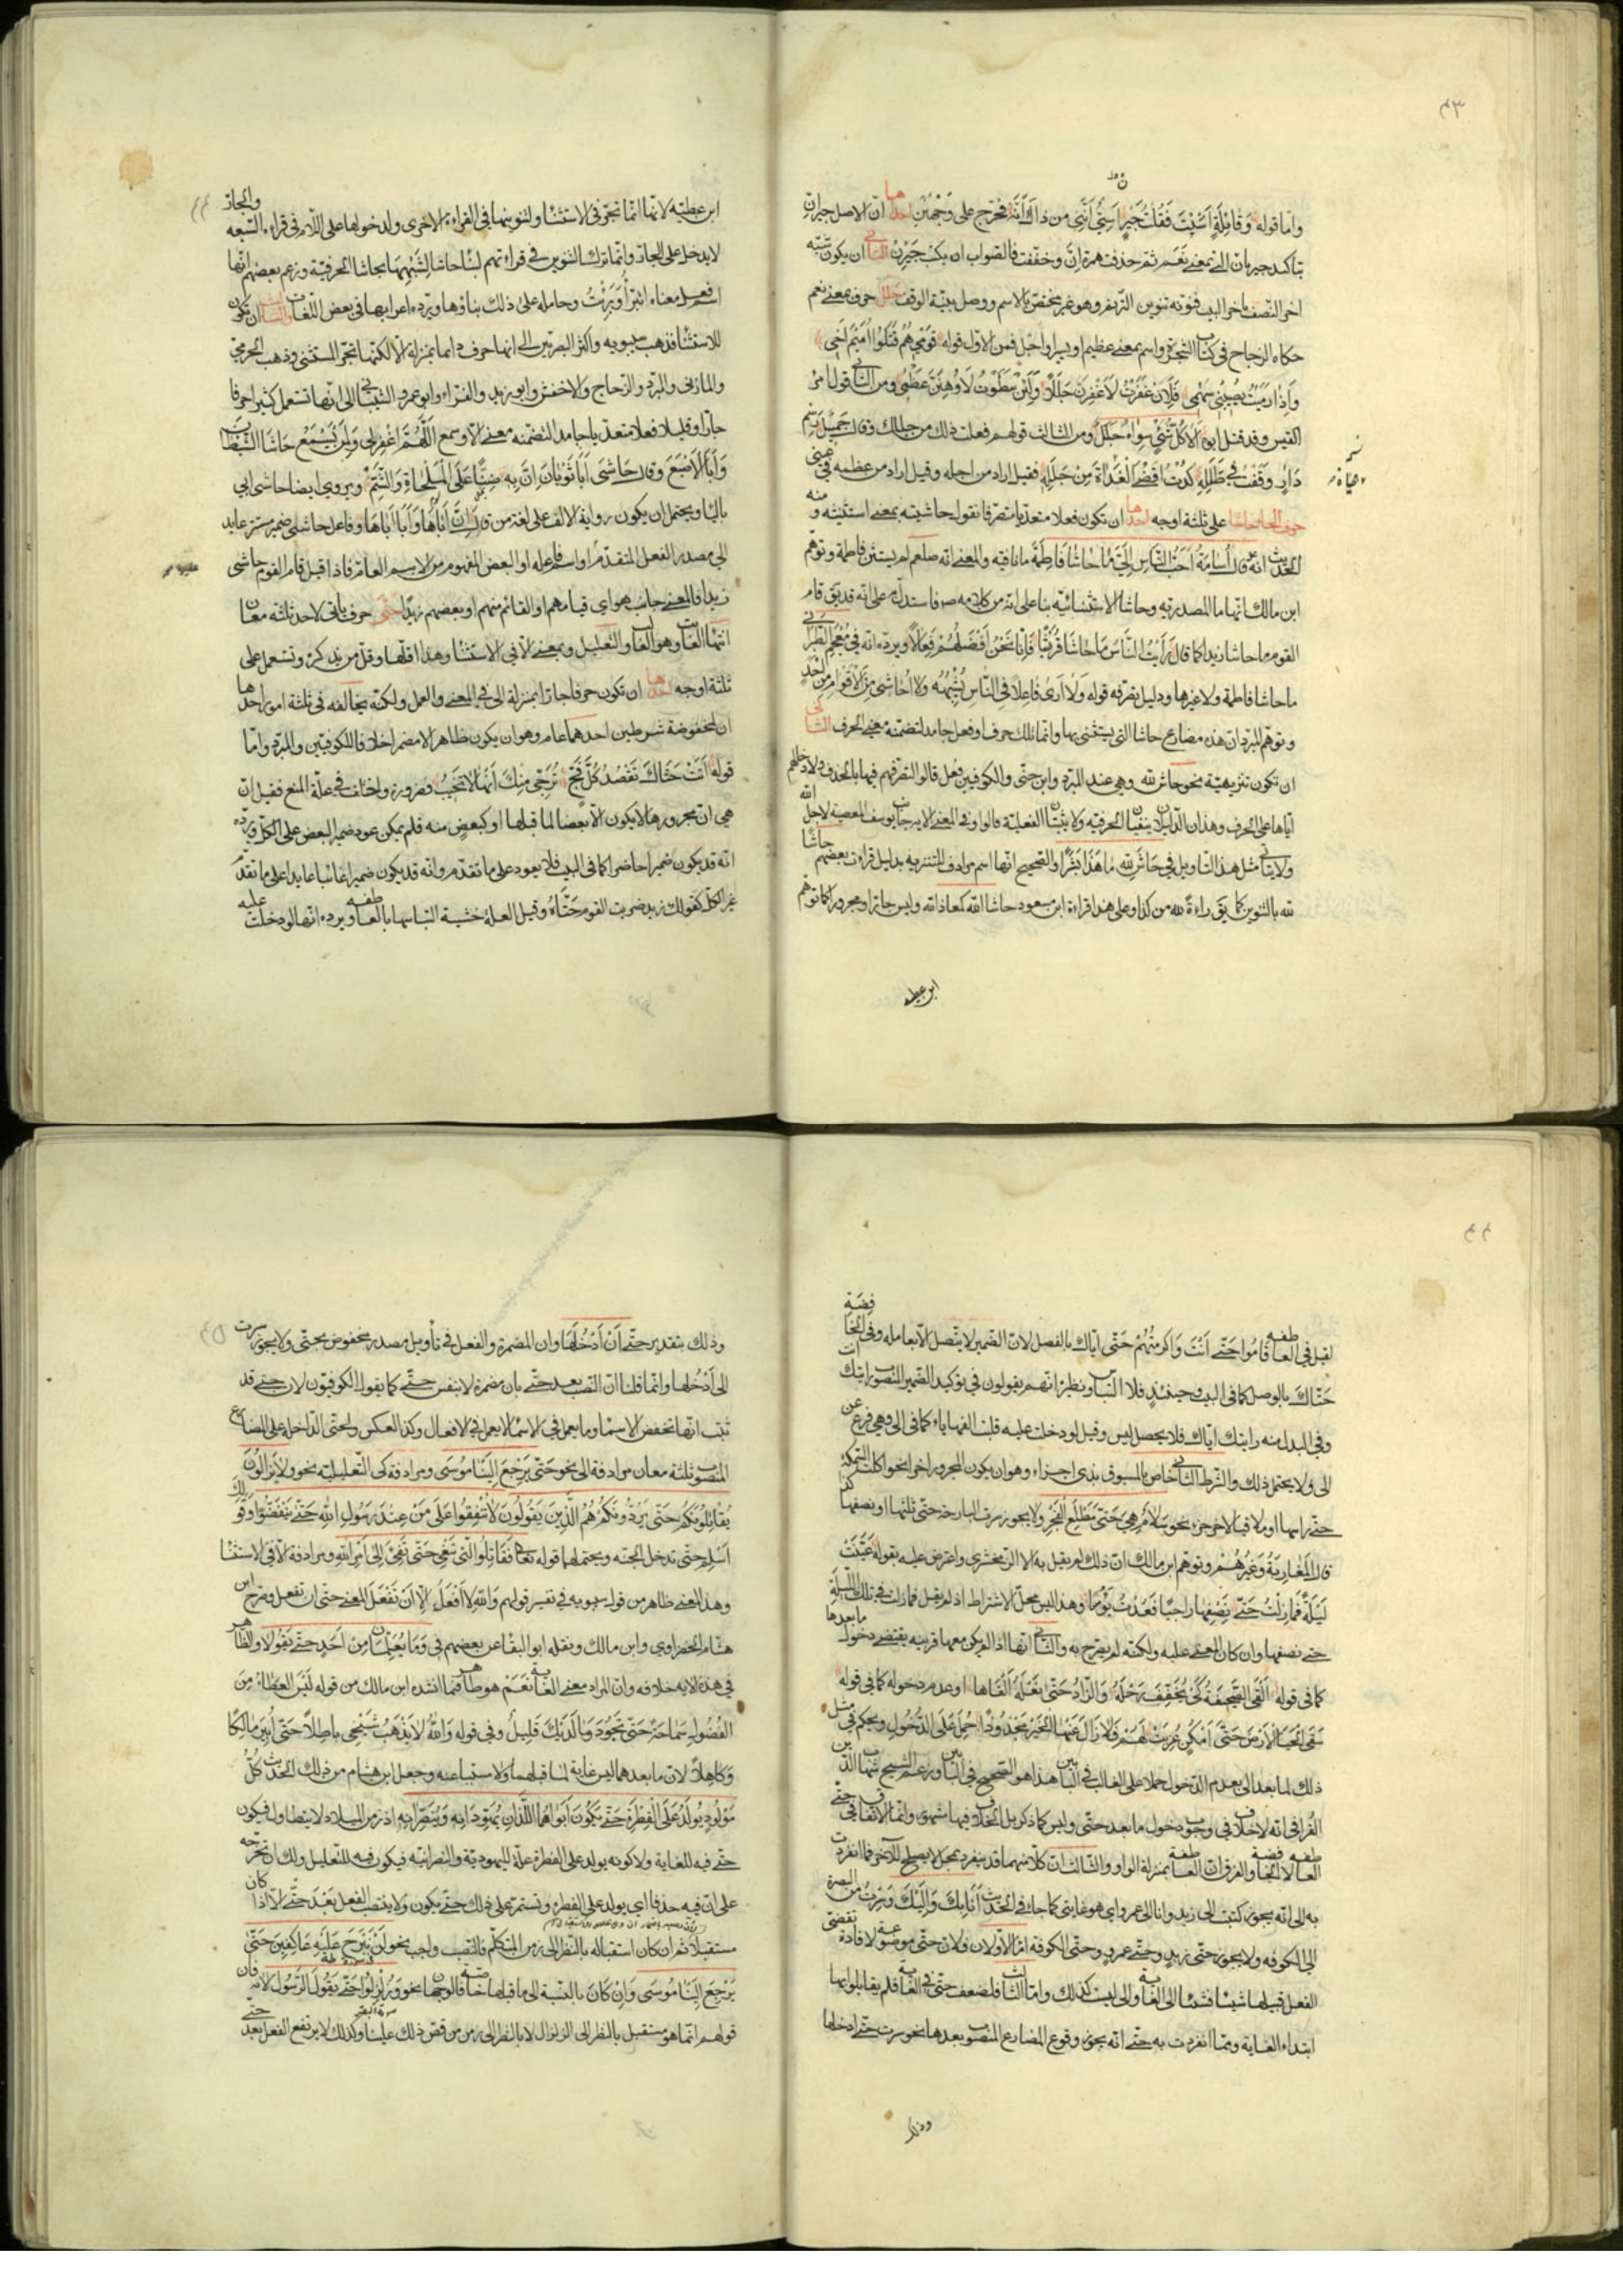 ٤٣
واما قوله وَقَائِلَةٍ اَسَيْتَ فَقُلْتُ جَيْرٍ اَسِيٌّ اِنَّنِي من ذاك اَنَّه فخرج على وَجْهَيْنِ احدها ان الاصل جيران
بتاكيد جير بان التي بمعنى نَعَم ثم حذفت همزة اِنَّ وخففت فالصواب ان يكتب جَيْرِنْ الثاني ان يكون شبه
اخر النصف باخر البيت فنونه تنوين الترنم وهو غير مختص بالاسم ووصل بنية الوقف جلل حرف بمعنى نعم
حكاه الزجاج في كتاب الشجرة واسم بمعنى عظيم او يسير او اجل فمن الاول قوله قَوْمِي هُمُ قَتَلُوا اُمَيْمَ اَخِي
وَاِذَا رَمَيْتُ يُصِيبُنِي سَهْمِي فَلَاِنْ عَفَوْتُ لَاَعْفُوَنْ جَلَلًا وَلَئِنْ سَطَوْتُ لَاُوهِنَنْ عَظْمِي ومن الثاني قول امرء
القيس وقد قتل ابوه اَلَا كُلُّ شَيْءٍ سِوَاهُ جَلَلْ ومن الثالث قولهم فعلت ذلك من جللك وقال جَمِيل رَسْمِ
دَارٍ وَقَفْتُ فِي طَلَلِهِ كِدْتُ اَقْضِي الْغَدَاةَ مِنْ جَلَلِهِ فقيل اراد من اجله وقيل اراد من عظمه في عيني
حرف الحاء حاشا على ثلثة اوجه احدها ان تكون فعلا متعديا متصرفا تقول حاشيته بمعنى استثنيته ومنه
الحديث انه عم قال اُسَامَةُ اَحَبُّ النَّاسِ اِلَيَّ مَا حَاشَا فَاطِمَةَ ما نافيه والمعنى انه صلعم لم يستثن فاطمة وتوهم
ابن مالك انها ما المصدرية وحاشا الاستثنائية بناء على انه من كلامه ص فاستدل به على انه قد يقال قام
القوم ما حاشا زيدا كما قال رَاَيْتُ النَّاسَ مَا حَاشَا قُرَيْشًا فَاِنَّا نَحْنُ اَفْضَلُهُمْ فَعَالًا ويرده انه في مُعْجَم الطبراني
ما حاشا فاطمة ولا غيرها ودليل تصرفه قوله وَلَا اَرَى فَاعِلًا فِي النَّاسِ يُشْبِهُهُ وَلَا اُحَاشِي مِنَ الْاَقْوَامِ مِنْ اَحَدِ
وتوهم المبرد ان هذه مضارع حاشا التي يستثنى بها وانما تلك حرف او فعل جامد لتضمنه معنى الحرف الثاني
ان تكون تنزيهية نحو حاش لله وهي عند المبرد وابن جني والكوفيين فعل قالوا لتصرفهم فيها بالحذف ولادخالهم
اياها على الحرف وهذان الدليلان ينفيان الحرفية ولا يثبتان الفعلية قالوا وفي المعنى الاية جانب يوسف المعصية لاجل الله
ولا يتاتى مثل هذا التاويل في حَاشَ لِلّهِ مَا هَذَا بَشَرًا والصحيح انها اسم مرادف للتنزيه بدليل قراءة بعضهم حاشًا
لله بالتنوين كما يقال براءة لله من كذا وعلى هذا قراءة ابن مسعود حاشا الله كمعاذ الله وليس جارا ومجرورا كما توهم
ابن عطيه
ابن عطية لانها انما تجر في الاستثناء ولتنوينها في القراءة الاخرى ولدخولها على اللام في قراءة السبعه والجار
لا يدخل على الجار وانما ترك التنوين في قراءتهم لبناء حاشا لشبهها بحاشا الحرفية وزعم بعضهم انها
اسم فعل معناه اتبرأ او بَرِئْتُ وحامله على ذلك بناؤها ويرده اعرابها في بعض اللغات والثالث ان تكون
للاستثناء فذهب سيبويه واكثر البصريين الى انها حرف دائما بمنزلة الا لكنها تجر المستثنى وذهب الجرمي
والمازني والمبرد والزجاج والاخفش وابو زيد والفراء وابو عمرو الشيباني الى انها تستعمل كثيرا حرفا
جارا وقليلا فعلا متعديا جامدا لتضمنه معنى الا وسمع اَللّهُمَّ اغْفِرْ لِي وَلِمَنْ يَسْمَعُ حَاشَا الشَّيْطَانَ
وَاَبَا الْاَصْبَغِ وقال حَاشَى اَبَا ثَوْبَانَ اِنَّ بِهِ ضِنًّا عَلَى الْمَلْحَاةِ وَالشَّتْمِ ويروى ايضا حاشى ابي
بالياء ويحتمل ان يكون رواية الالف على لغة من قال اِنَّ اَبَاهَا وَاَبَا اَبَاهَا وفاعل حاشا ضمير مستتر عايد
الى مصدر الفعل المتقدم او اسم فاعله او البعض المفهوم من الاسم العام فاذا قيل قام القوم حاشى
زيدا فالمعنى جانب هو اي قيامهم او القائم منهم او بعضهم زيدًا حتى حرف يأتي لاحد ثلثة معان
انتهاء الغاية وهو الغالب والتعليل وبمعنى الا في الاستثناء وهذا اقلها وقل من يذكره وتستعمل على
ثلثة اوجه احدها ان تكون حرفا جارا بمنزلة الى في المعنى والعمل ولكنه يخالفه في ثلثة امور احدها
ان لمخفوضه شرطين احدهما عام وهو ان يكون ظاهرا لا مضمرا خلافا للكوفيين والمبرد واما
قوله اَتَتْ حَتَّاكَ تَقْصُدُ كُلَّ فَجٍّ تُرَجِّي مِنْكَ اَنَّهَا لَا تَخِيبُ فضرورة واختلف في علة المنع فقيل ان
هي ان مجرورها لا يكون الا بعضا لما قبلها او كبعض منه فلم يمكن عود ضمير البعض على الكل ويرده
انه قد يكون ضميرا حاضرا كما في البيت فلا يعود على ما تقدم وانه قد يكون ضميرا غائبا عايدا على ما تقدم
غير الكل كقولك زيد ضربت القوم حَتَّاهُ وقيل العلة خشية التباسها بالعاطفه ويرده انها لو دخلت عليه
٤٤
لقيل في العاطفه قَامُوا حَتَّى اَنْتَ وَاَكْرَمْتُهُمْ حَتَّى اِيَّاكَ بالفصل لان الضمير لا يتصل الا بعامله وفي الخافضة
حَتَّاكَ بالوصل كما في البيت وحينئذٍ فلا التباس ونظيره انهم يقولون في توكيد الضمير المنصوب رايتك انت
وفي البدل منه رايتك اياك فلا يحصل لبس وقيل لو دخلت عليه قلبت الفها ياء كما في الى وهي فرع عن
الى ولا يحتمل ذلك والشرط الثاني خاص بالمسبوق بذي اجزاء وهو ان يكون المجرور اخرا نحو اكلت السمكة
حتى راسها او ملاقيا لاخر جزء نحو سَلَامٌ هِيَ حَتَّى مَطْلَعِ الْفَجْرِ ولا يجوز سرت البارحة حتى ثلثها او نصفها كذا
قال المَغَاربَةُ وَغَيْرُهُمْ وتوهم ابن مالك ان ذلك لم يقل به الا الزمخشري واعترض عليه بقوله عَيَّنْتُ
لَيْلَةً فَمَا زِلْتُ حَتَّى نِصْفِهَا رَاجِيًا فَعُدْتُ يَؤُسًا وهذا ليس محل الاشتراط اذ لم يقل فما زلت في تلك الليلة
حتى نصفها وان كان المعنى عليه ولكنه لم يصرح به والثاني انها اذا لم يكن معها قرينة يقتضي دخول ما بعدها
كما في قوله اَلْقَى الصَّحِيفَةَ كَيْ يُخَفِّفَ رَحْلَهُ وَالزَّادَ حَتَّى نَعْلَهُ اَلْقَاهَا او عدم دخوله كما في قوله
سَقَى الْحَيَا الْاَرْضَ حَتَّى اَمْكُنٍ عُزِيَتْ لَهُمْ فَلَا زَالَ عَنْهَا الْخَيْرُ مَجْدُودًا حُمِلَ عَلَى الدُّخُولِ ويحكم في مثل
ذلك لما بعد الى بعدم الدخول حملا على الغالب في البابين هذا هو الصحيح في البابين وزعم الشيخ شهاب الدين
القرافي انه لا خلاف في وجوب دخول ما بعد حتى وليس كما ذكر بل الخلاف فيها مشهور وانما الاتفاق في حتى
العاطفه لا الخافضة والفرق ان العاطفة بمنزلة الواو والثالث ان كلا منهما قد ينفرد بمحل لا يصلح للاخر فما انفردت
به الى انه يجوز كتبت الى زيد وانا الى عمرو اي هو غايتي كما جاء في الحديث اَنَا بِكَ وَاِلَيْكَ وَسِرْتُ من البصرة
الى الكوفه ولا يجوز حتى زيدٍ وحتى عمرٍو وحتى الكوفة اما الاولان فلان حتى موضوعة لافادة تقضي
الفعل قبلها شيئا فشيئا الى الغاية والى ليست كذلك واما الثالث فلضعف حتى في الغاية فلم يقابلوا بها
ابتداء الغاية ومما انفردت به حتى انه يجوز وقوع المضارع المنصوب بعدها نحو سرت حتى ادخلها
وذلك
وذلك بتقدير حتى اَنْ اَدْخُلَهَا وان المضمرة والفعل في تأويل مصدر مخفوض بحتى ولا يجوز سرت
الى اَدْخُلها وانما قلنا ان النصب بعد حتى بان مضمرة لا بنفس حتى كما يقول الكوفيون لان حتى قد
ثبت انها تخفض الاسماء وما يعمل في الاسماء لا يعمل في الافعال وكذا العكس ولحتى الداخل على المضارع
المنصوب ثلثة معان مرادفة الى نحو حَتَّى يَرْجِعَ اِلَيْنَا مُوسَى ومرادفة كي التعليلية نحو وَلَا يَزَالُونَ
يُقَاتِلُونَكُمْ حَتَّى يَرُدُّوكُمْ هُمُ الَّذِينَ يَقُولُونَ لَا تُنْفِقُوا عَلَى مَنْ عِنْدَ رَسُولِ اللهِ حَتَّى يَنْفَضُّوا وقولك
اَسْلِم حتى تدخل الجنه ويحتملها قوله تعالى فَقَاتِلُوا الَّتِي تَبْغِي حَتَّى تَفِيءَ اِلَى اَمْرِ اللهِ ومرادفة الا في الاستثناء
وهذا المعنى ظاهر من قول سيبويه في تفسير قولهم وَاللهِ لَا اَفْعَلُ اِلَّا اَنْ تَفْعَلَ المعنى حتى ان تفعل وصرح ابن
هشام الخضراوي وابن مالك ونقله ابو البقاء عن بعضهم في وَمَا يُعَلِّمَانِ مِنْ اَحَدٍ حَتَّى يَقُولَا والظاهر
في هذه الاية خلافه وان المراد معنى الغاية نَعَمْ هو ظاهر فيما انشده ابن مالك من قوله لَيْسَ الْعَطَاءُ مِنَ
الْفُضُولِ سَمَاحَةً حَتَّى تَجُودَ وَمَا لَدَيْكَ قَلِيلُ وفي قوله وَاللهُ لَا يَذْهَبُ شَيْخِي بَاطِلًا حَتَّى اُبِيرَ مَالِكًا
وَكَاهِلًا لان ما بعدهما ليس غاية لما قبلهما ولا مسببا عنه وجعل ابن هشام من ذلك الحديث كُلُّ
مَوْلُودٍ يُولَدُ عَلَى الْفِطْرَةِ حَتَّى يَكُونَ اَبَوَاهُ اللَّذَانِ يُهَوِّدَانِهِ وَيُنَصِّرَانِهِ اذ زمن الميلاد لا يتطاول فيكون
حتى فيه للغاية ولا كونه يولد على الفطرة علة لليهودية والنصرانية فيكون فيه للتعليل ولك ان تخرجه
على ان فيه حذفا اي يولد على الفطرة ويستمر على ذلك حتى يكون ولا ينتصب الفعل بَعْدَ حَتَّى الا اذا كان
مستقبلا ثم ان كان استقباله بالنظر الى زمن المتكلم فالنصب واجب نحو لَنْ نَبْرَحَ عَلَيْهِ عَاكِفِينَ حَتَّى
يَرْجِعَ اِلَيْنَا مُوسَى وَاِنْ كَانَ بالنسبة الى ما قبلها خاصة فالوجهان نحو وَزُلْزِلُوا حَتَّى يَقُولَ الرَّسُولُ الاية فان
قولهم انما هو مستقبل بالنظر الى الزلزال لا بالنظر الى زمن من قص ذلك علينا وكذلك لا يرتفع الفعل بعد حتى